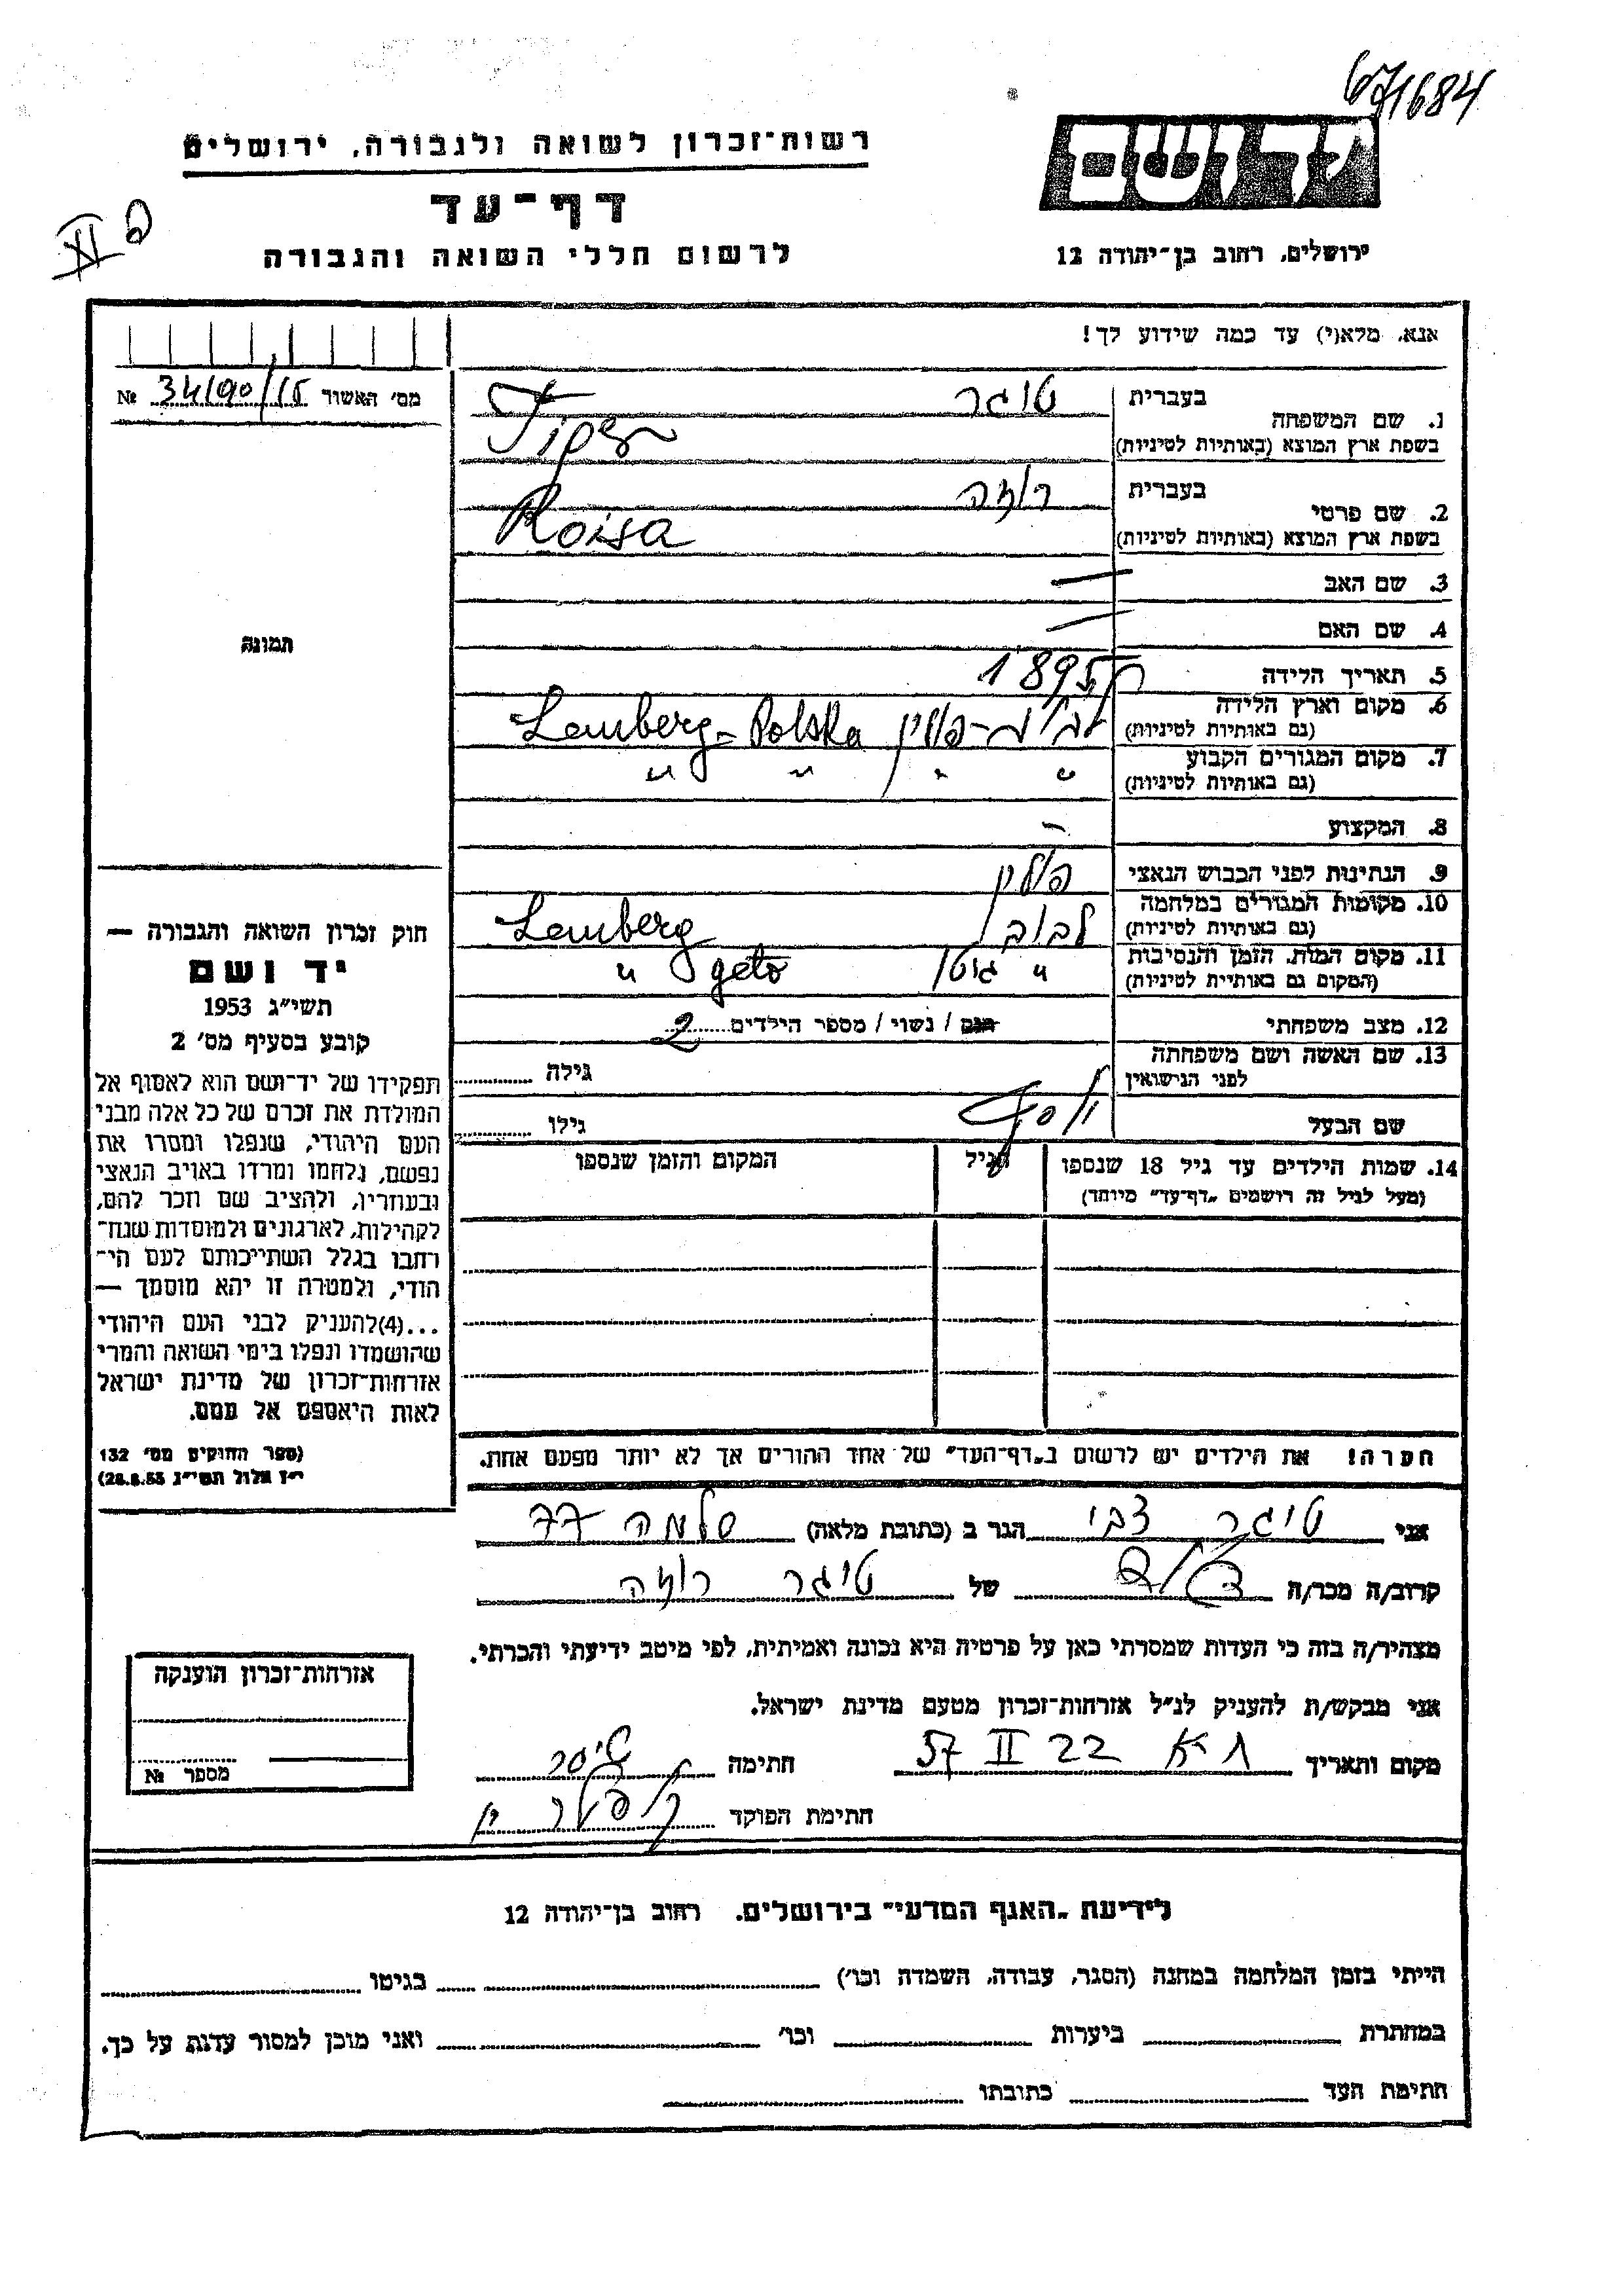 671684
רשות־זכרון לשואה ולגבורה, ירושלים
דף־עד
לרשום חללי השואה והגבורה
ירושלים, רחוב בן־יהודה 12
אנא, מלא(י) עד כמה שידוע לך!
מס׳ האשור 34/90/15 №
1. שם המשפחה בעברית טיגר
בשפת ארץ המוצא (באותיות לטיניות)
2. שם פרטי בעברית רוזה
בשפת ארץ המוצא (באותיות לטיניות) Roisa
3. שם האב —
4. שם האם —
תמונה
5. תאריך הלידה 1895
6. מקום וארץ הלידה פולין Lemberg - Polska
(גם באותיות לטיניות)
7. מקום המגורים הקבוע " " " "
(גם באותיות לטיניות)
8. המקצוע -
9. הנתינות לפני הכבוש הנאצי פולין
10. מקומות המגורים במלחמה לבוב Lemberg
(גם באותיות לטיניות)
11. מקום המות, הזמן והנסיבות " גיטו " geto
(המקום גם באותיית לטיניות)
12. מצב משפחתי רווק / נשוי / מספר הילדים 2
13. שם האשה ושם משפחתה גילה
לפני הנישואין
שם הבעל יוסף גילו
14. שמות הילדים עד גיל 18 שנספו הגיל המקום והזמן שנספו
(מעל לגיל זה רושמים „דף־עד״ מיוחד)
חוק זכרון השואה והגבורה —
יד ושם
תשי״ג 1953
קובע בסעיף מס׳ 2
תפקידו של יד־ושם הוא לאסוף אל
המולדת את זכרם של כל אלה מבני
העם היהודי, שנפלו ומסרו את
נפשם, נלחמו ומרדו באויב הנאצי
ובעוזריו, ולהציב שם וזכר להם,
לקהילות, לארגונים ולמוסדות שנח־
רבו בגלל השתייכותם לעם הי־
הודי, ולמטרה זו יהא מוסמך —
...(4)להעניק לבני העם היהודי
שהושמדו ונפלו בימי השואה והמרי
אזרחות־זכרון של מדינת ישראל
לאות היאספם אל עמם.
(ספר החוקים מס׳ 132
י״ז אלול תשי״ג 28.8.53)
הערה! את הילדים יש לרשום ב„דף־העד״ של אחד ההורים אך לא יותר מפעם אחת.
אני טיגר צבי הגר ב (כתובת מלאה) שלמה 77
קרוב/ה מכר/ה של טיגר רוזה
מצהיר/ה בזה כי העדות שמסרתי כאן על פרטיה היא נכונה ואמיתית, לפי מיטב ידיעתי והכרתי.
אני מבקש/ת להעניק לנ״ל אזרחות־זכרון מטעם מדינת ישראל.
מקום ותאריך 22 II 57 חתימה
חתימת הפוקד
אזרחות־זכרון הוענקה
מספר №
לידיעת „האגף המדעי״ בירושלים, רחוב בן־יהודה 12
הייתי בזמן המלחמה במחנה (הסגר, עבודה, השמדה וכו׳) בגיטו
במחתרת ביערות וכו׳ ואני מוכן למסור עדות על כך.
חתימת העד כתובתו